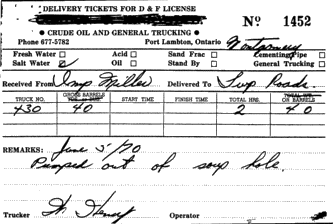 DELIVERY TICKETS FOR D & F LICENSE
Nº 1452
• CRUDE OIL AND GENERAL TRUCKING •
Phone 677-5782 Port Lambton, Ontario Montgomery
Fresh Water Acid Sand Frac Cementing Pipe
Salt Water Oil Stand By General Trucking
Received From Imp Miller Delivered To Twp Roads.
TRUCK NO. GROSS BARRELS START TIME FINISH TIME TOTAL HRS. OR BARRELS
430 40 2 40
REMARKS: June 5/70
Pumped out of soup hole.
Trucker W Henry Operator